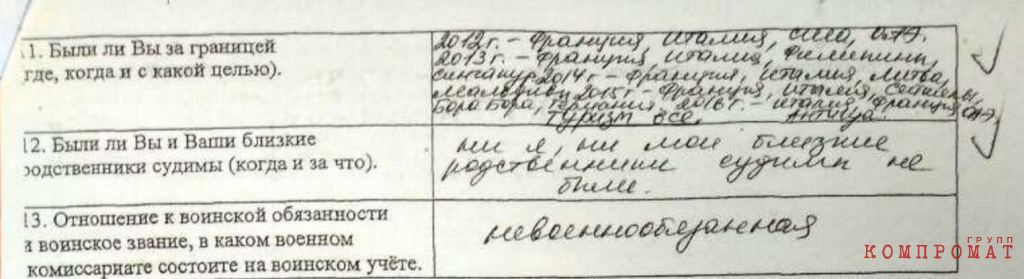 11. Были ли Вы за границей
где, когда и с какой целью).
2012г. – Франция, Италия, сша, ОАЭ.
2013г. – Франция, Италия, Филиппины,
Сингапур 2014г – Франция, Италия, Литва,
2015г – Франция, Италия, Сейшелы,
Бора Бора, Германия, 2016г. – Италия, Франция,
Туризм все. Антигуа.
12. Были ли Вы и Ваши близкие
родственники судимы (когда и за что).
ни я, ни мои близкие
родственники судимы не
были.
13. Отношение к воинской обязанности
и воинское звание, в каком военном
комиссариате состоите на воинском учёте.
невоеннообязанная
ГРУПП
КОМПРОМАТ